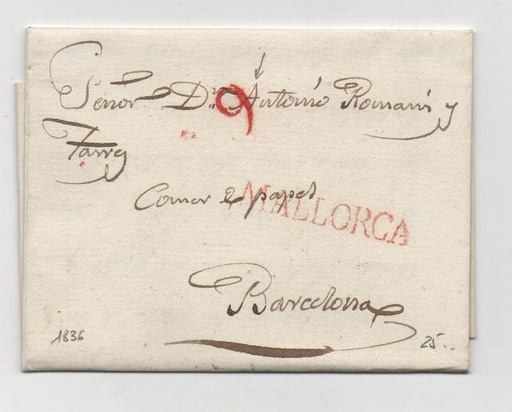 Señor Dn Antonio Romaní y
9
Tarres
Comer e papel
MALLORCA
Barcelona
1836
25..